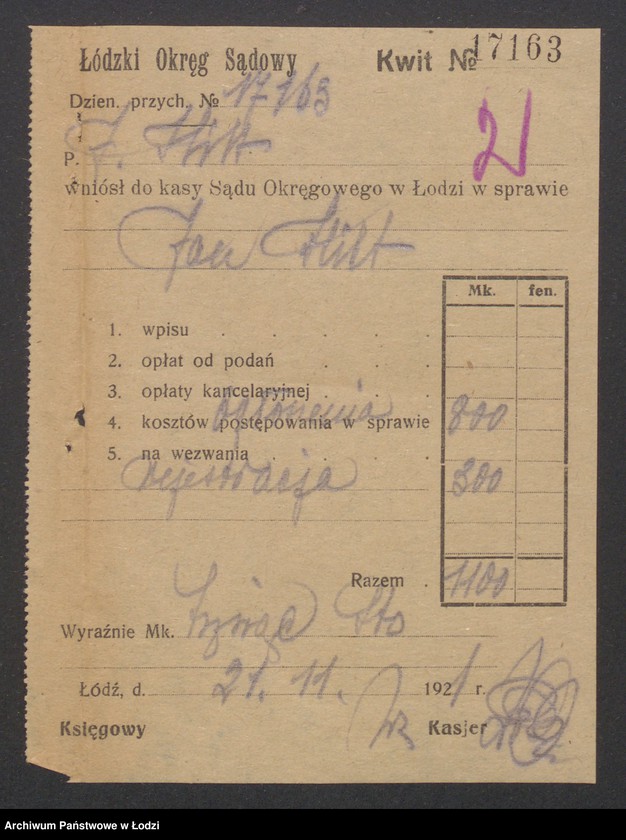 Łódzki Okręg Sądowy Kwit № 17163
Dzien. przych. № 17163
P. J.
wniósł do kasy Sądu Okręgowego w Łodzi w sprawie
Jan
Mk. fen.
1. wpisu . . . . .
2. opłat od podań . . .
3. opłaty kancelaryjnej . . .
ogłoszenia
4. kosztów postępowania w sprawie 800
5. na wezwania . . . . .
rejestracja 300
Razem . 1100
Wyraźnie Mk. tysiąc sto
Łódź, d. 21. 11. 1921 r.
Księgowy Kasjer
Archiwum Państwowe w Łodzi